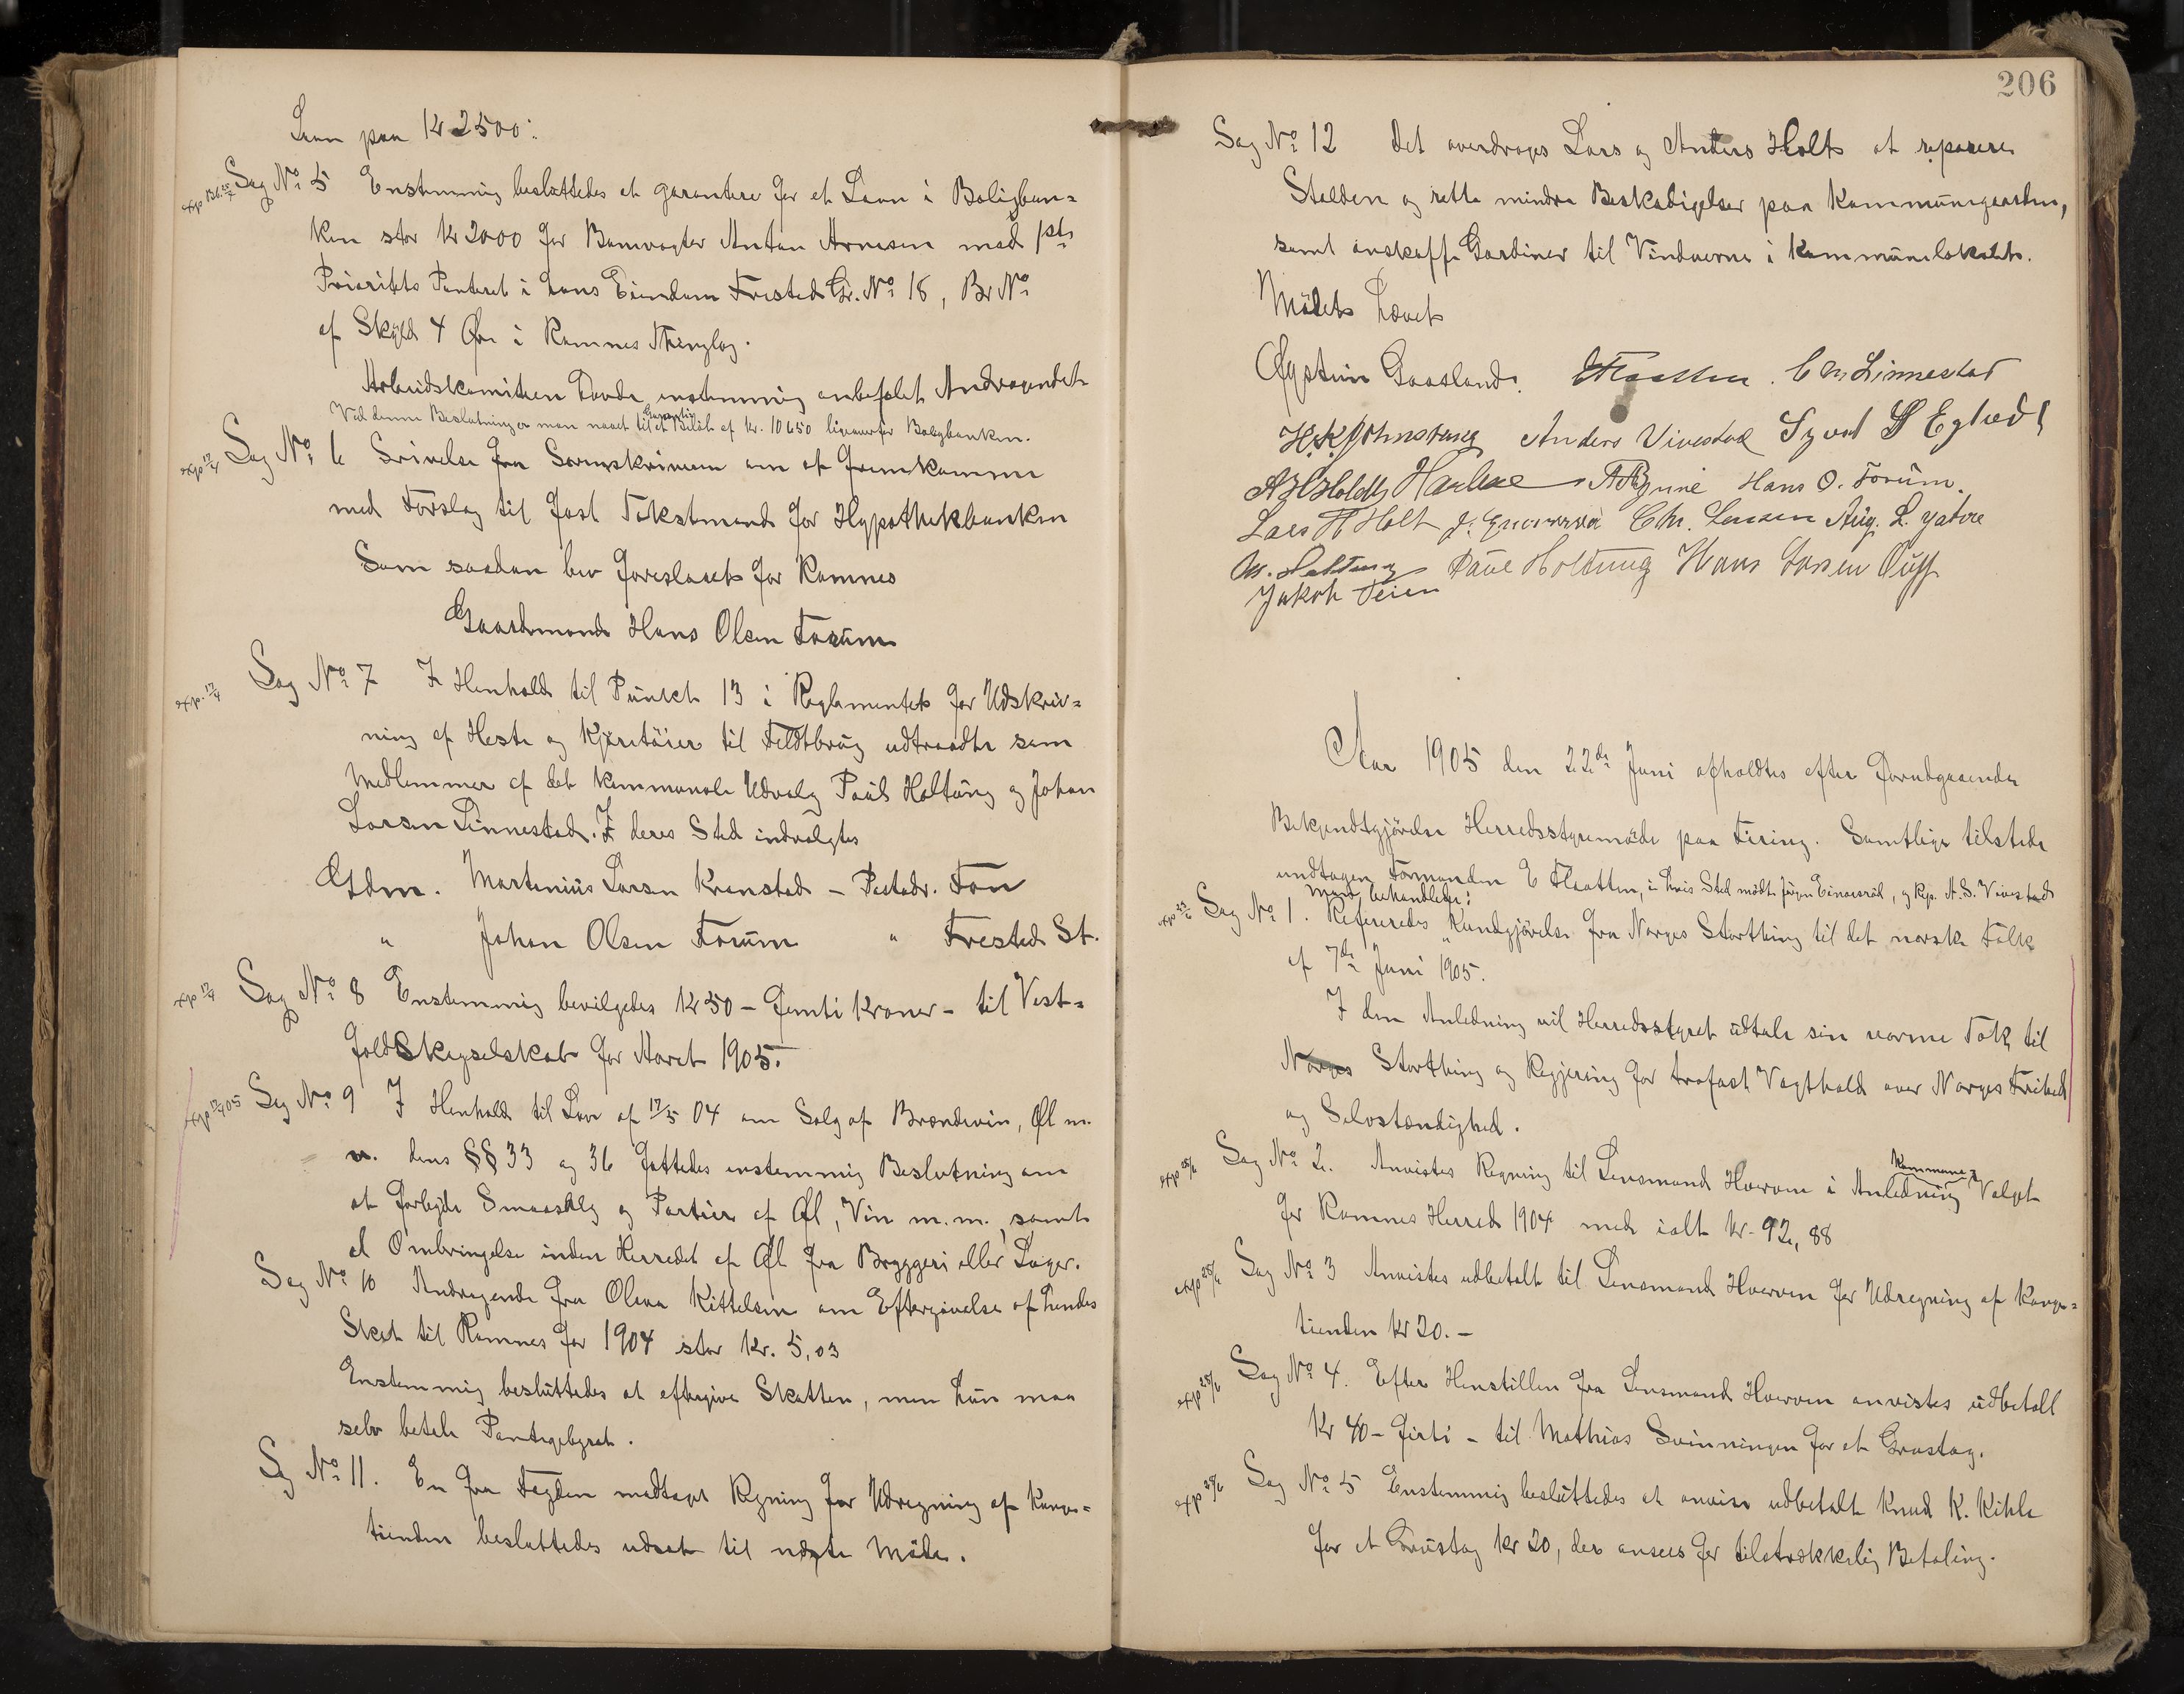 Laan paa Kr 2500:
Sag No 5 Enstemmig besluttedes at garantere for et Laan i Boligban=
ken stor Kr 2000 for Banevogter Anton Arnesen mod 1ste
Prioritets Panteret i hans Eiendom Fresteds Gr. No 18, Br No
af Skyld 4 Øre i Ramnes Thinglag.
Arbeidskomiteen havde enstemmig anbefalet Andragendet
Ved denne Beslutning er man naaet til et Garanti Beløb af Kr. 10650 ligeoverfor Boligbanken.
exp 12/4 Sag No 6 Srivelse fra Sorenskriveren om at fremkomme
med Forslag til fast Takstmand for Hypothekbanken
Som saadan blev foreslaaet for Ramnes
Gaardmand Hans Olsen Forum
exp. 12/4 Sag No 7 I Henhold til Punkt 13 i Reglementet for Udskriv=
ning af Heste og Kjøretøier til Feldtbrug udtraadte som
Medlemmer af det kommunale Udvalg Paul Holtung og Johan
Larsen Linnestad. I deres Sted indvalgtes
Gdm. Martinius Larsen Kranstad – Postadr. Fon
" Johan Olsen Forum " Fresteds St.
exp 12/4 Sag No 8 Enstemmig bevilgedes Kr 50 – femti Kroner – til Vest=
foldSkogselskab for Aaret 1905.
exp 12/4 05 Sag No 9 I Henhold til Lov af 17/5 04 om Salg af Brændevin, Øl m.
v. dens §§ 33 og 36 fattedes enstemmig Beslutning om
at forbyde Smaasalg og Partier af Øl, Vin m.m., samt
al Ombringelse inden Herredet af Øl fra Bryggeri eller Lager.
Sag No 10 Andragende fra Olava Kittelsen om Eftergivelse af hendes
Skat til Ramnes for 1904 stor Kr. 5,03
Enstemmig besluttedes at eftergive Skatten, men hun maa
selv betale Pantegebyret.
Sag No 11. En fra Fogden modtaget Regning for Udregning af Konge=
tienden besluttedes udsat til næste Møde.
206
Sag No 12 Det overdroges Lars og Anders Holt at reparere
Stalden og rette mindre Beskadigelser paa Kommunegaarden,
samt anskaffe Gardiner til Vinduerne i Kommunelokalet.
Mødet hævet
Øystein Gaasland. EFlaatten. C Chr Linnestad
Anders Vivestad Syvert
Hans O. Forum.
Lars H Holt Chr. Larsen Aug. L.
Paul Holtung Hans Larsen
Jakob Teien
Aar 1905 den 22de Juni afholdtes efter forudgaaende
Bekjendtgjørelse Herredsstyremøde paa Firing. Samtlige tilstede
undtagen Formanden E Flaatten, i hvis Sted mødte Jørgen Einarsrød, og Rep. A. S. Vivestad
Man behandlede:
exp 23/6 Sag No 1. Refereredes "Kundgjørelse fra Norges Storthing til det norske Folk
af 7de Juni 1905.
I den Anledning vil Herredsstyret udtale sin varme Tak til
Norges Storthing og Regjering for trofast Vagthold over Norges Frihed
og Selvstændighed.
exp 28/6 Sag No 2. Anvistes Regning til Lensmand Hverven i Anledning Kommune= Valget
for Ramnes Herred 1904 med ialt Kr. 92,88
exp 28/6 Sag No 3 Anvistes udbetalt til Lensmand Hverven for Udregning af Konge=
tienden Kr 20.–
exp 28/6 Sag No 4. Efter Henstillen fra Lensmand Hverven anvistes udbetalt
Kr 40 – firti – til Mathias Svinningen for et Grustag.
exp 28/6 Sag No 5 Enstemmig besluttedes at anvise udbetalt Knud K. Kihle
for et Grustag Kr 20, der ansees for tilstrækkelig Betaling.